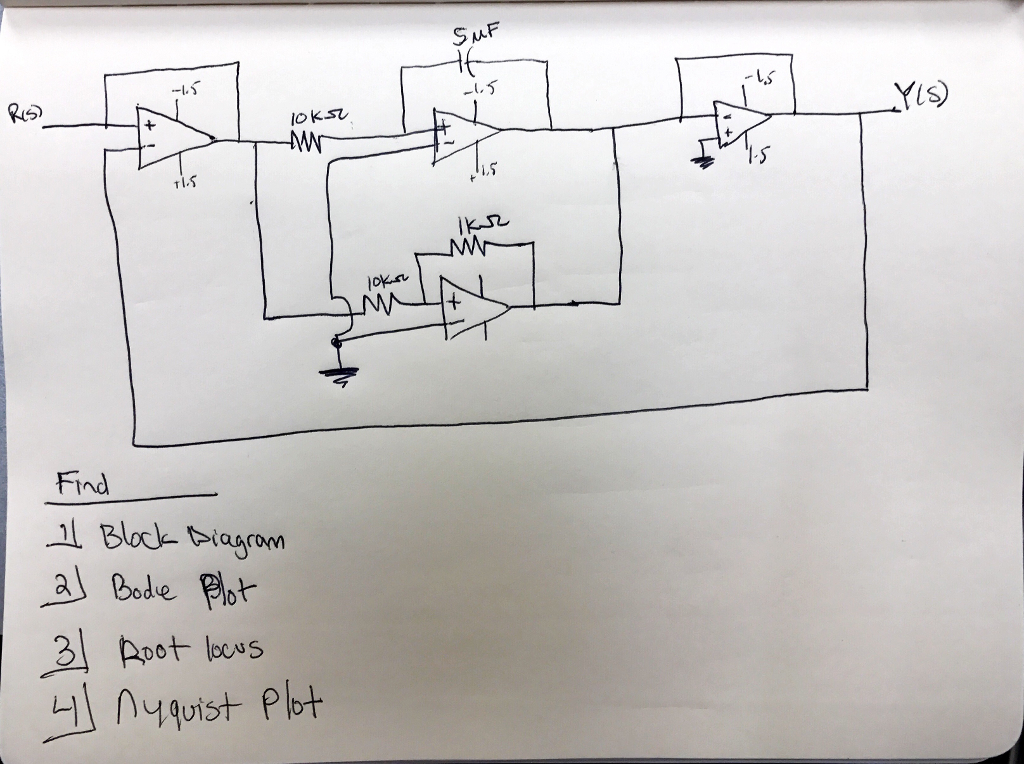 5μF
R(s)
-1.5
+
-
+1.5
10KΩ
-1.5
+
-
+1.5
-1.5
-
+
1.5
Y(S)
1KΩ
10KΩ
+
-
Find
1) Block Diagram
2) Bode Plot
3) Root locus
4) Nyquist Plot